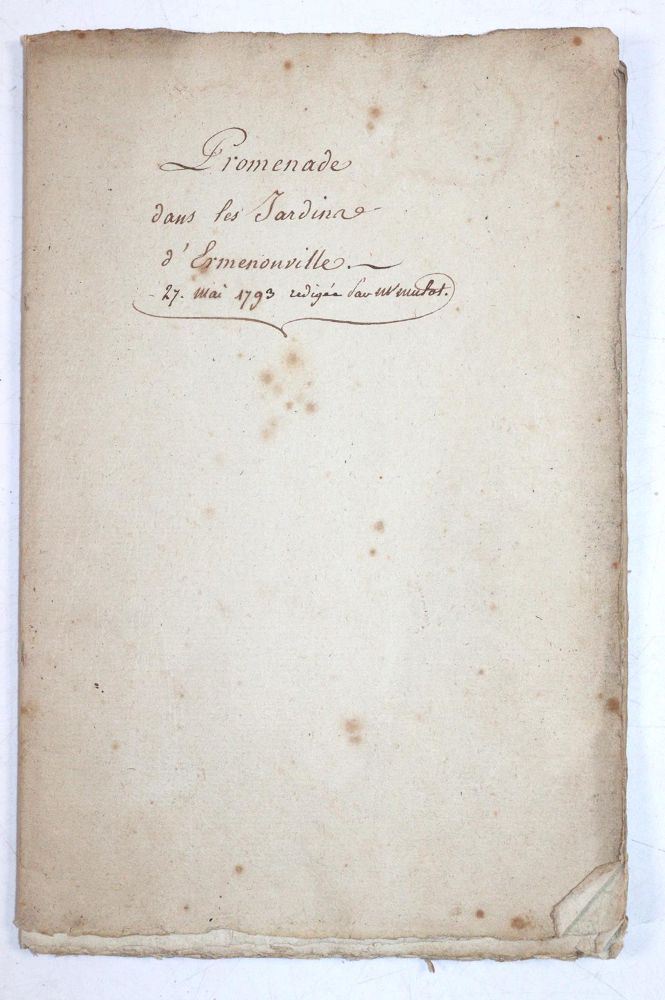 Promenade
dans les Jardins
d'Ermenouville.
27. mai 1793 redigée par Mr mulot.